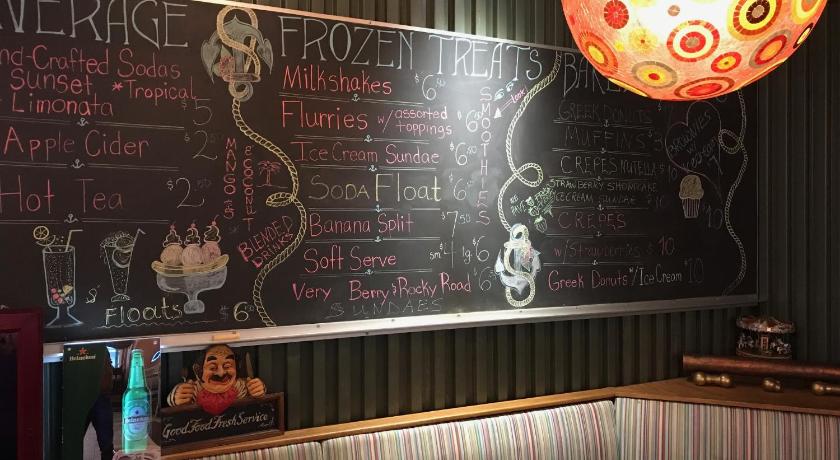 VERAGE
nd-Crafted Sodas
Sunset, *Tropical
Limonata $5
Apple Cider $2.50
Hot Tea $2.50
MANGO
COCONUT
BLENDED
DRINKS
Floats $6
FROZEN TREATS
Milkshakes $6
Flurries w/ assorted
toppings $6
Ice Cream Sundae $6
SODA Float $6
Banana Split $7.50
Soft Serve sm $4 lg $6
Very Berry & Rocky Road $6
SUNDAES
SMOOTHIES
Look
BA
GREEK DONUTS
MUFFINS
CREPES NUTELLA $10
STRAWBERRY SHORTCAKE
ICECREAM SUNDAE $10
CREPES
w/Strawberries $10
Greek Donuts w/ Ice Cream $10
BROWNIES
$10
Heineken
Good Food Fresh Service